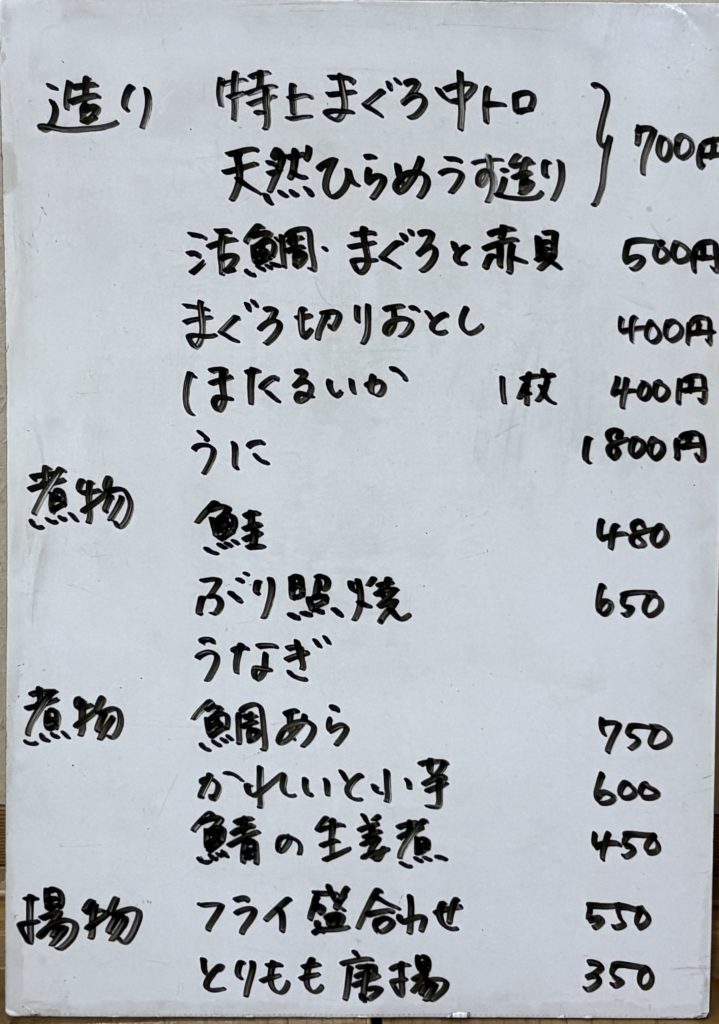 造り 特上まぐろ中トロ
天然ひらめうす造り } 700円
活鯛・まぐろと赤貝 500円
まぐろ切りおとし 400円
ほたるいか 1枚 400円
うに 1800円
煮物
鮭 480
ぶり照焼 650
うなぎ
煮物 鯛あら 750
かれいと小芋 600
鯖の生姜煮 450
揚物 フライ盛合わせ 550
とりもも唐揚 350